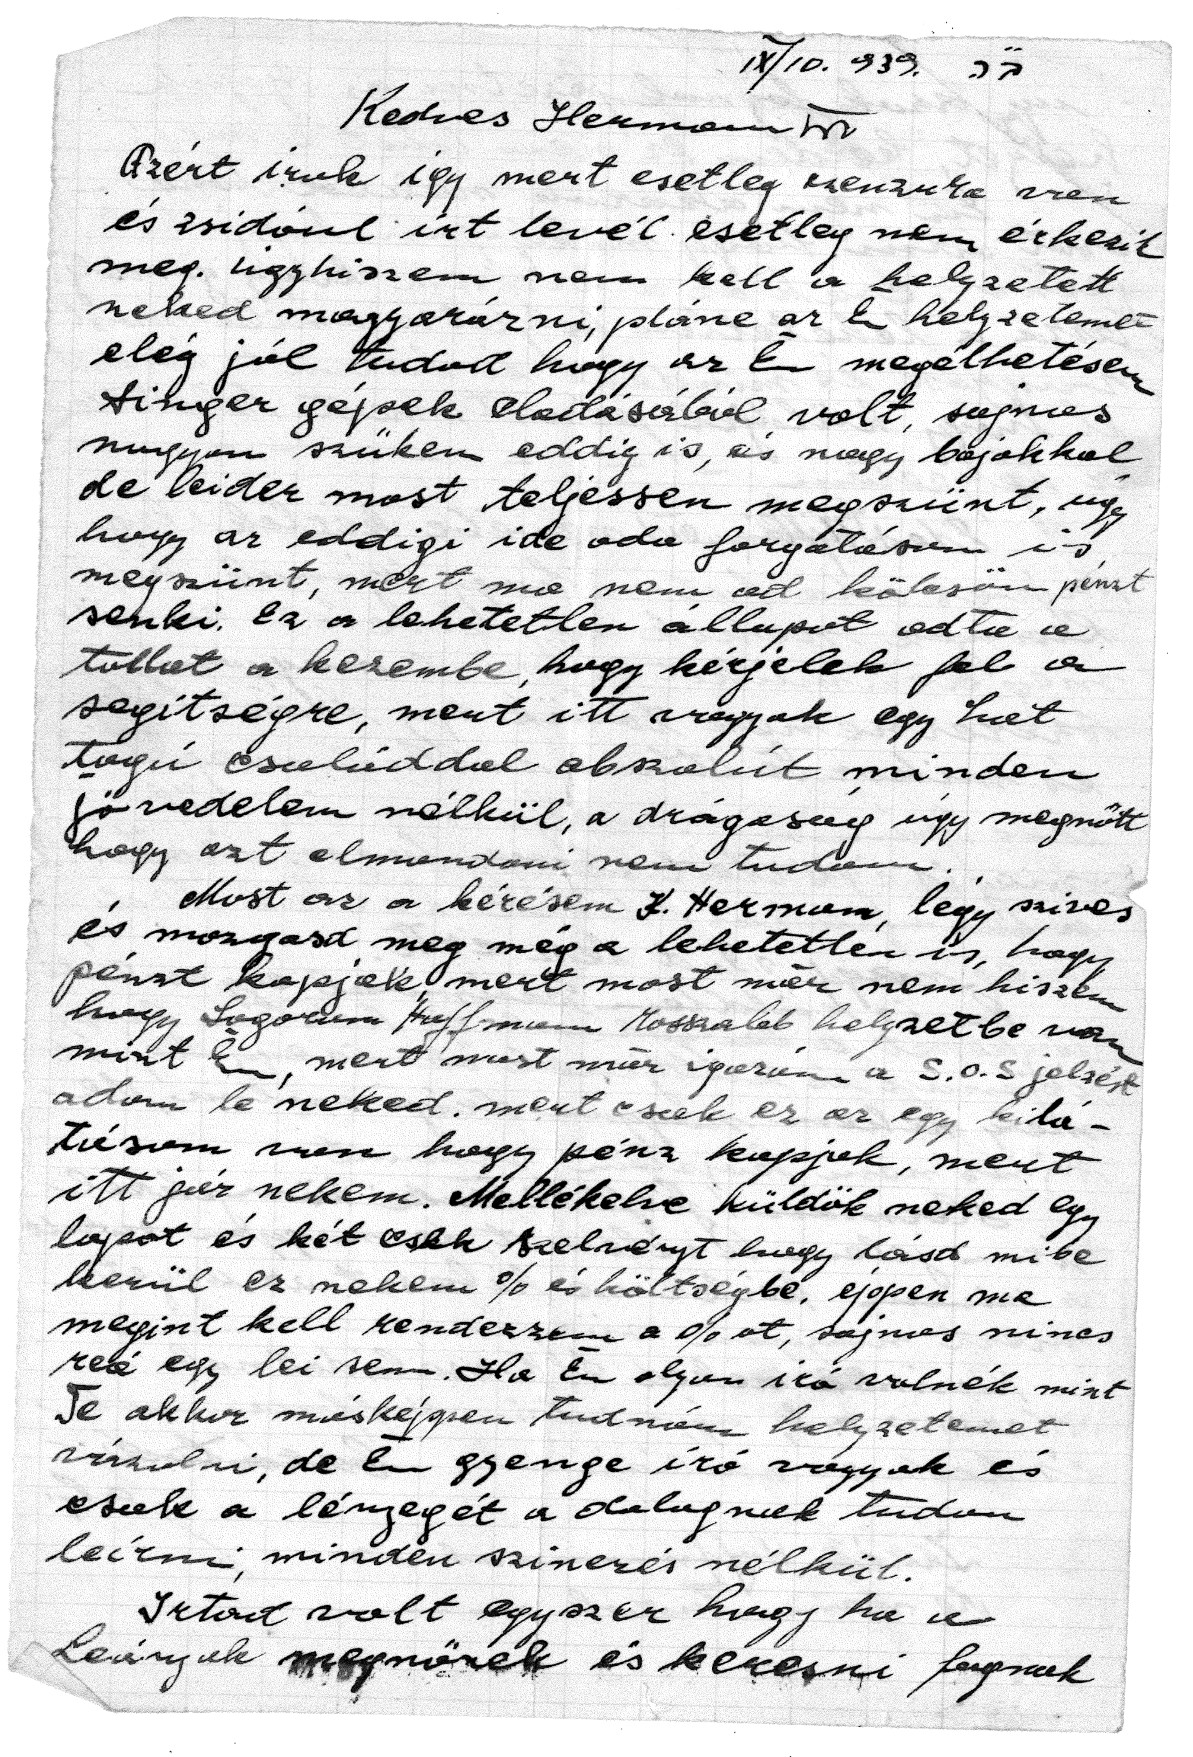 IX/10. 939. ב״ה
Kedves Hermann
Azért irok igy mert esetleg cenzura van
és zsidóul irt levél esetleg nem érkezik
meg. Ugyhiszem nem kell a helyzetett
neked magyarázni, pláne az Én helyzetemet
elég jól tudod hogy az Én megélhetésem
Singer gépek eladásából volt, sajnos
nagyon szüken eddig is, és nagy bajokkal
de leider most teljessen megszünt, úgy
hogy az eddigi ide oda forgatásom is
megszünt, mert ma nem ad kölcsön pénzt
senki. Ez a lehetetlen állapot adta a
tollat a kezembe, hogy kérjelek fel a
segítségre, mert itt vagyok egy hat
tagú családdal abszolút minden
jövedelem nélkül, a drágaság úgy megnőtt
hogy azt elmondani nem tudom.
Most az a kérésem K. Hermann, légy szives
és mozgasd meg még a lehetetlen is, hogy
pénzt kapjak, mert most már nem hiszem
hogy Hoffmann rosszabb helyzetbe van
mint Én, mert most már igazán a S.O.S jelzést
adom le neked. mert csak ez az egy kilá-
tásom van hogy pénz kapjak, mert
itt jár nekem. Mellékelve küldök neked egy
lapot és két csek szelvényt hogy lásd mibe
kerül ez nekem % és költségbe, éppen ma
megint kell rendezzem a %ot, sajnos nincs
reá egy lei sem. Ha Én olyan iró volnék mint
Te akkor másképpen tudnám helyzetemet
vázolni, de Én gyenge iró vagyok és
csak a lényegét a dolognak tudom
leírni, minden szinezés nélkül.
Irtad volt egyszer hogy ha a
Leányok megnőnek és keresni fognak